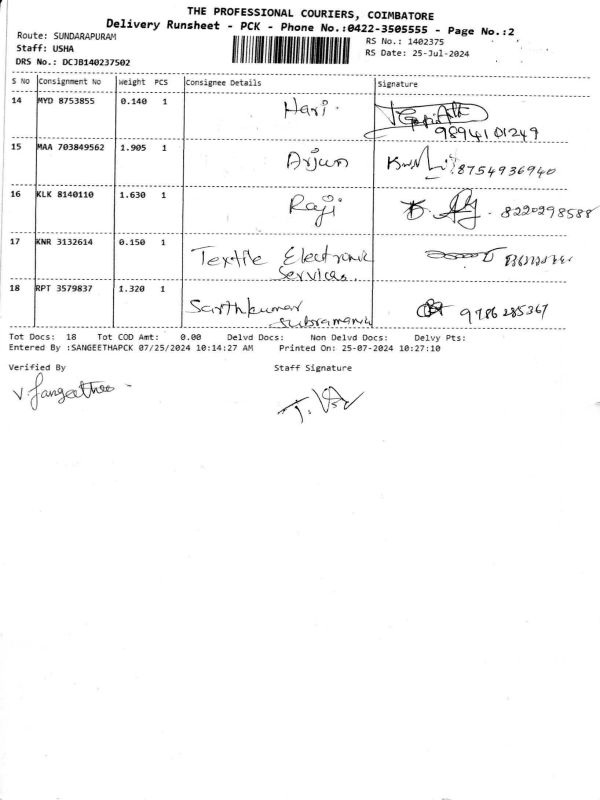 THE PROFESSIONAL COURIERS, COIMBATORE
Delivery Runsheet - PCK - Phone No.:0422-3505555 - Page No.:2
Route: SUNDARAPURAM
RS No.: 1402375
Staff: USHA
RS Date: 25-Jul-2024
DRS No.: DCJB140237502
S No Consignment No Weight PCS Consignee Details Signature
14 MYD 8753855 0.140 1 Hari.
9894101249
15 MAA 703849562 1.905 1 Arjun 8754936940
16 KLK 8140110 1.630 1 Raji 8220298588
17 KNR 3132614 0.150 1 Textile Electronic
Services.
18 RPT 3579837 1.320 1 Sarthkumar 9786285367
Subramani
Tot Docs: 18 Tot COD Amt: 0.00 Delvd Docs: Non Delvd Docs: Delvy Pts:
Entered By :SANGEETHAPCK 07/25/2024 10:14:27 AM Printed On: 25-07-2024 10:27:10
Verified By Staff Signature
V. Sangeetha